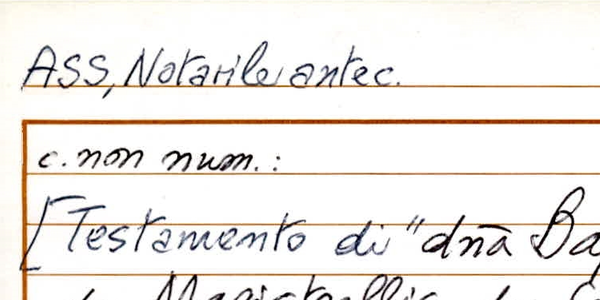 ASS, Notarile antec.
c. non num.:
[Testamento di "dnā